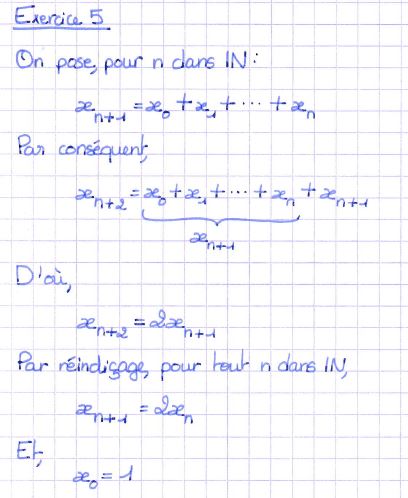 Exercice 5
On pose, pour n dans IN :
x_{n+1} = x_0 + x_1 + ... + x_n
Par conséquent,
x_{n+2} = x_0 + x_1 + ... + x_n + x_{n+1}
x_{n+1}
D'où,
x_{n+2} = 2x_{n+1}
Par réindiçage, pour tout n dans IN,
x_{n+1} = 2x_n
Et,
x_0 = 1